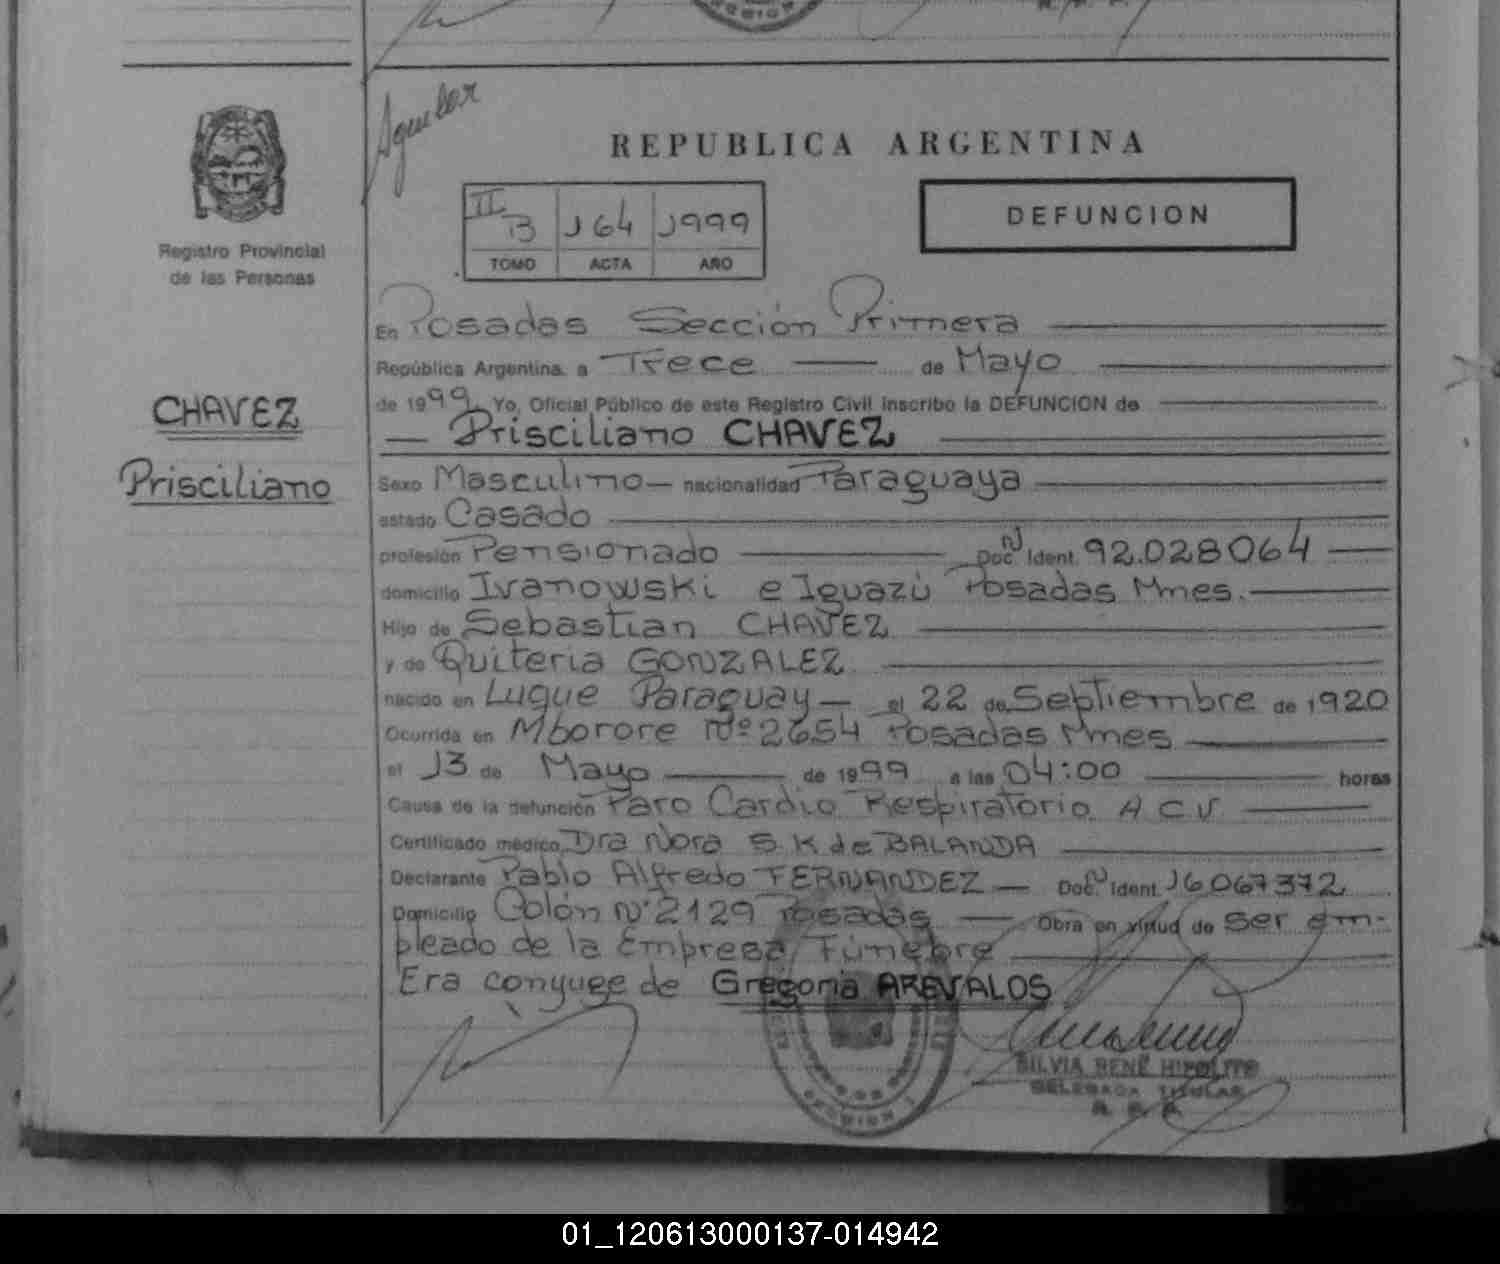 Aguilar
REPUBLICA ARGENTINA
II B 164 1999
TOMO ACTA AÑO
DEFUNCION
Registro Provincial
de las Personas
CHAVEZ
Prisciliano
En Posadas Sección Primera
República Argentina, a Trece de Mayo
de 1999 Yo, Oficial Público de este Registro Civil inscribo la DEFUNCION de
Prisciliano CHAVEZ
Sexo Masculino nacionalidad Paraguaya
estado Casado
profesión Pensionado Doc. N Ident. 92.028064
domicilio Ivanowski e Iguazú Posadas Mnes.
Hijo de Sebastian CHAVEZ
y de Quiteria GONZALEZ
nacido en Luque Paraguay el 22 de Septiembre de 1920
Ocurrida en Mborore Nº 2654 Posadas Mnes
el 13 de Mayo de 1999 a las 04:00 horas
Causa de la defunción Paro Cardio Respiratorio A C V
Certificado médico Dra Nora S. K de BALANDA
Declarante Pablo Alfredo FERNANDEZ Doc. N Ident. 16.067372
Domicilio Colón Nº 2129 Posadas Obra en virtud de ser em-
pleado de la Empresa Fúnebre
Era conyuge de Gregoria AREVALOS
SILVIA RENE HIPOLITO
DELEGADA TITULAR
01_120613000137-014942